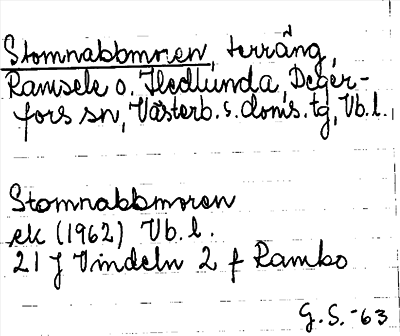 Stomnabbmoren, terräng,
Ramsele o. Hedlunda, Deger-
fors sn, Västerb. s. doms. tg, Vb. l.
Stomnabbmoren
ek (1962) Vb. l.
21 J Vindeln 2 f Rambo
G. S. -63